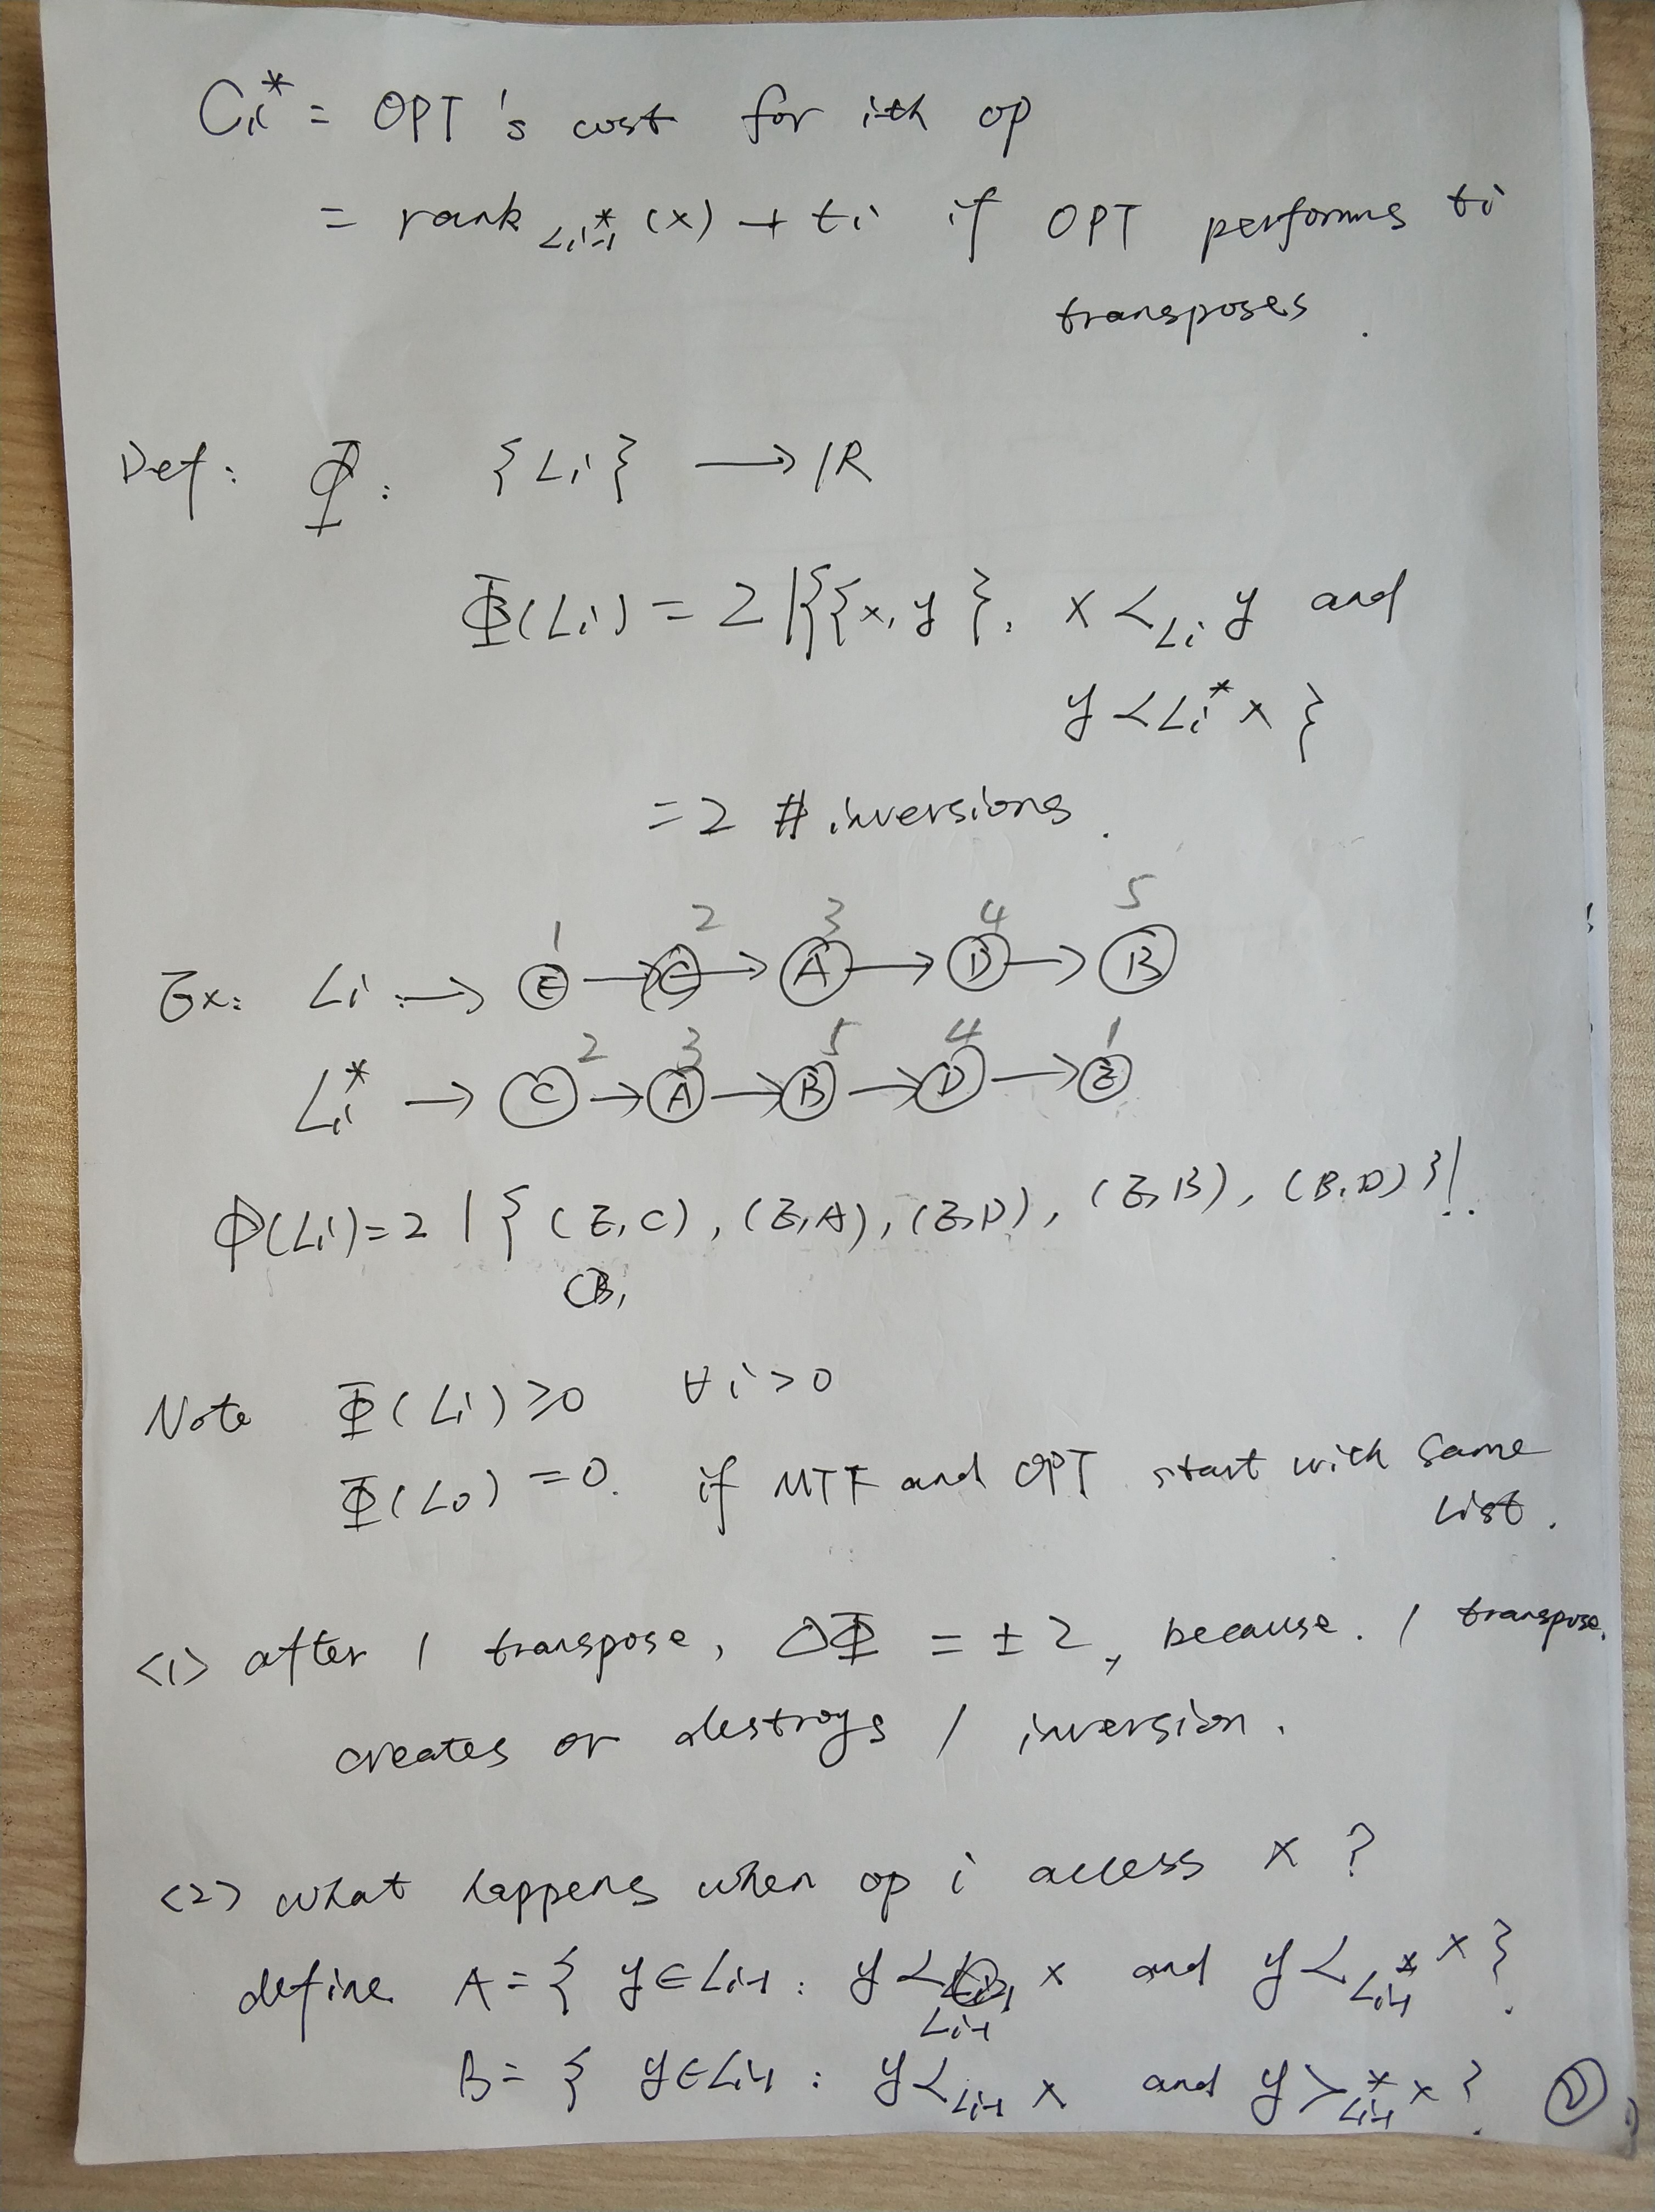 Ci* = OPT's cost for ith op
= rank Li-1* (x) + ti if OPT performs ti
transposes.
Def: Φ: {Li} → IR
Φ(Li) = 2 |{{x, y}. x <Li y and
y <Li* x }
= 2 # inversions.
1 2 3 4 5
Ex: Li → E → C → A → D → B
2 3 5 4 1
Li* → C → A → B → D → E
Φ(Li) = 2 | { (E, C), (E, A), (E, D), (E, B), (B, D) }|.
(B,
Note Φ(Li) ≥ 0 ∀i > 0
Φ(L0) = 0. if MTF and OPT start with same
List.
<1> after 1 transpose, ΔΦ = ±2, because. 1 transpose.
creates or destroys 1 inversion.
<2> what happens when op i access x ?
define A = { y ∈ Li-1 : y <Li-1 x and y <Li-1* x }.
B = { y ∈ Li-1 : y <Li-1 x and y >Li-1* x }.
②